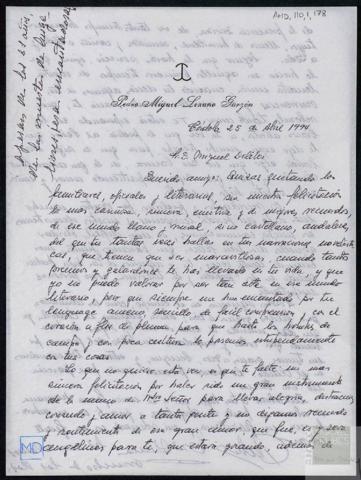 AMD, 110, 1, 178
Pedro Miguel Lozano Garzón
Córdoba 25 de Abril 1994
A D. Miguel Delibes
Querido amigo: Quizás quitando los
familiares, oficiales y literarios, sea nuestra felicitación
la más cariñosa, sincera, emotiva y de mejores recuerdos
de ese mundo llano, rural, sino castellano, andaluz,
del que tu tantas veces hablas en tus narraciones novelísti-
cas, que tienen que ser maravillosas, cuando tantos
premios y galardones te has llevado en tu vida, y que
yo no puedo valorar por ser tan alto en ese mundo
literario, pero que siempre me has encantado por tu
lenguaje ameno, sencillo, de facil comprensión, con el
corazón a flor de pluma para que hasta los hombres de
campo y con poca cultura lo pasemos estupendamente
en tus cosas
Lo que no quiero esta vez, es que te falte mi más
sincera felicitación por haber sido un gran instrumento
de la mano de Ntro Señor para llevar alegría,
y amor a tanta gente y no digamos recuerdo
y sentimiento de ese gran amor que fue, es y será
angelines para ti, que estará gozando, además de
MD